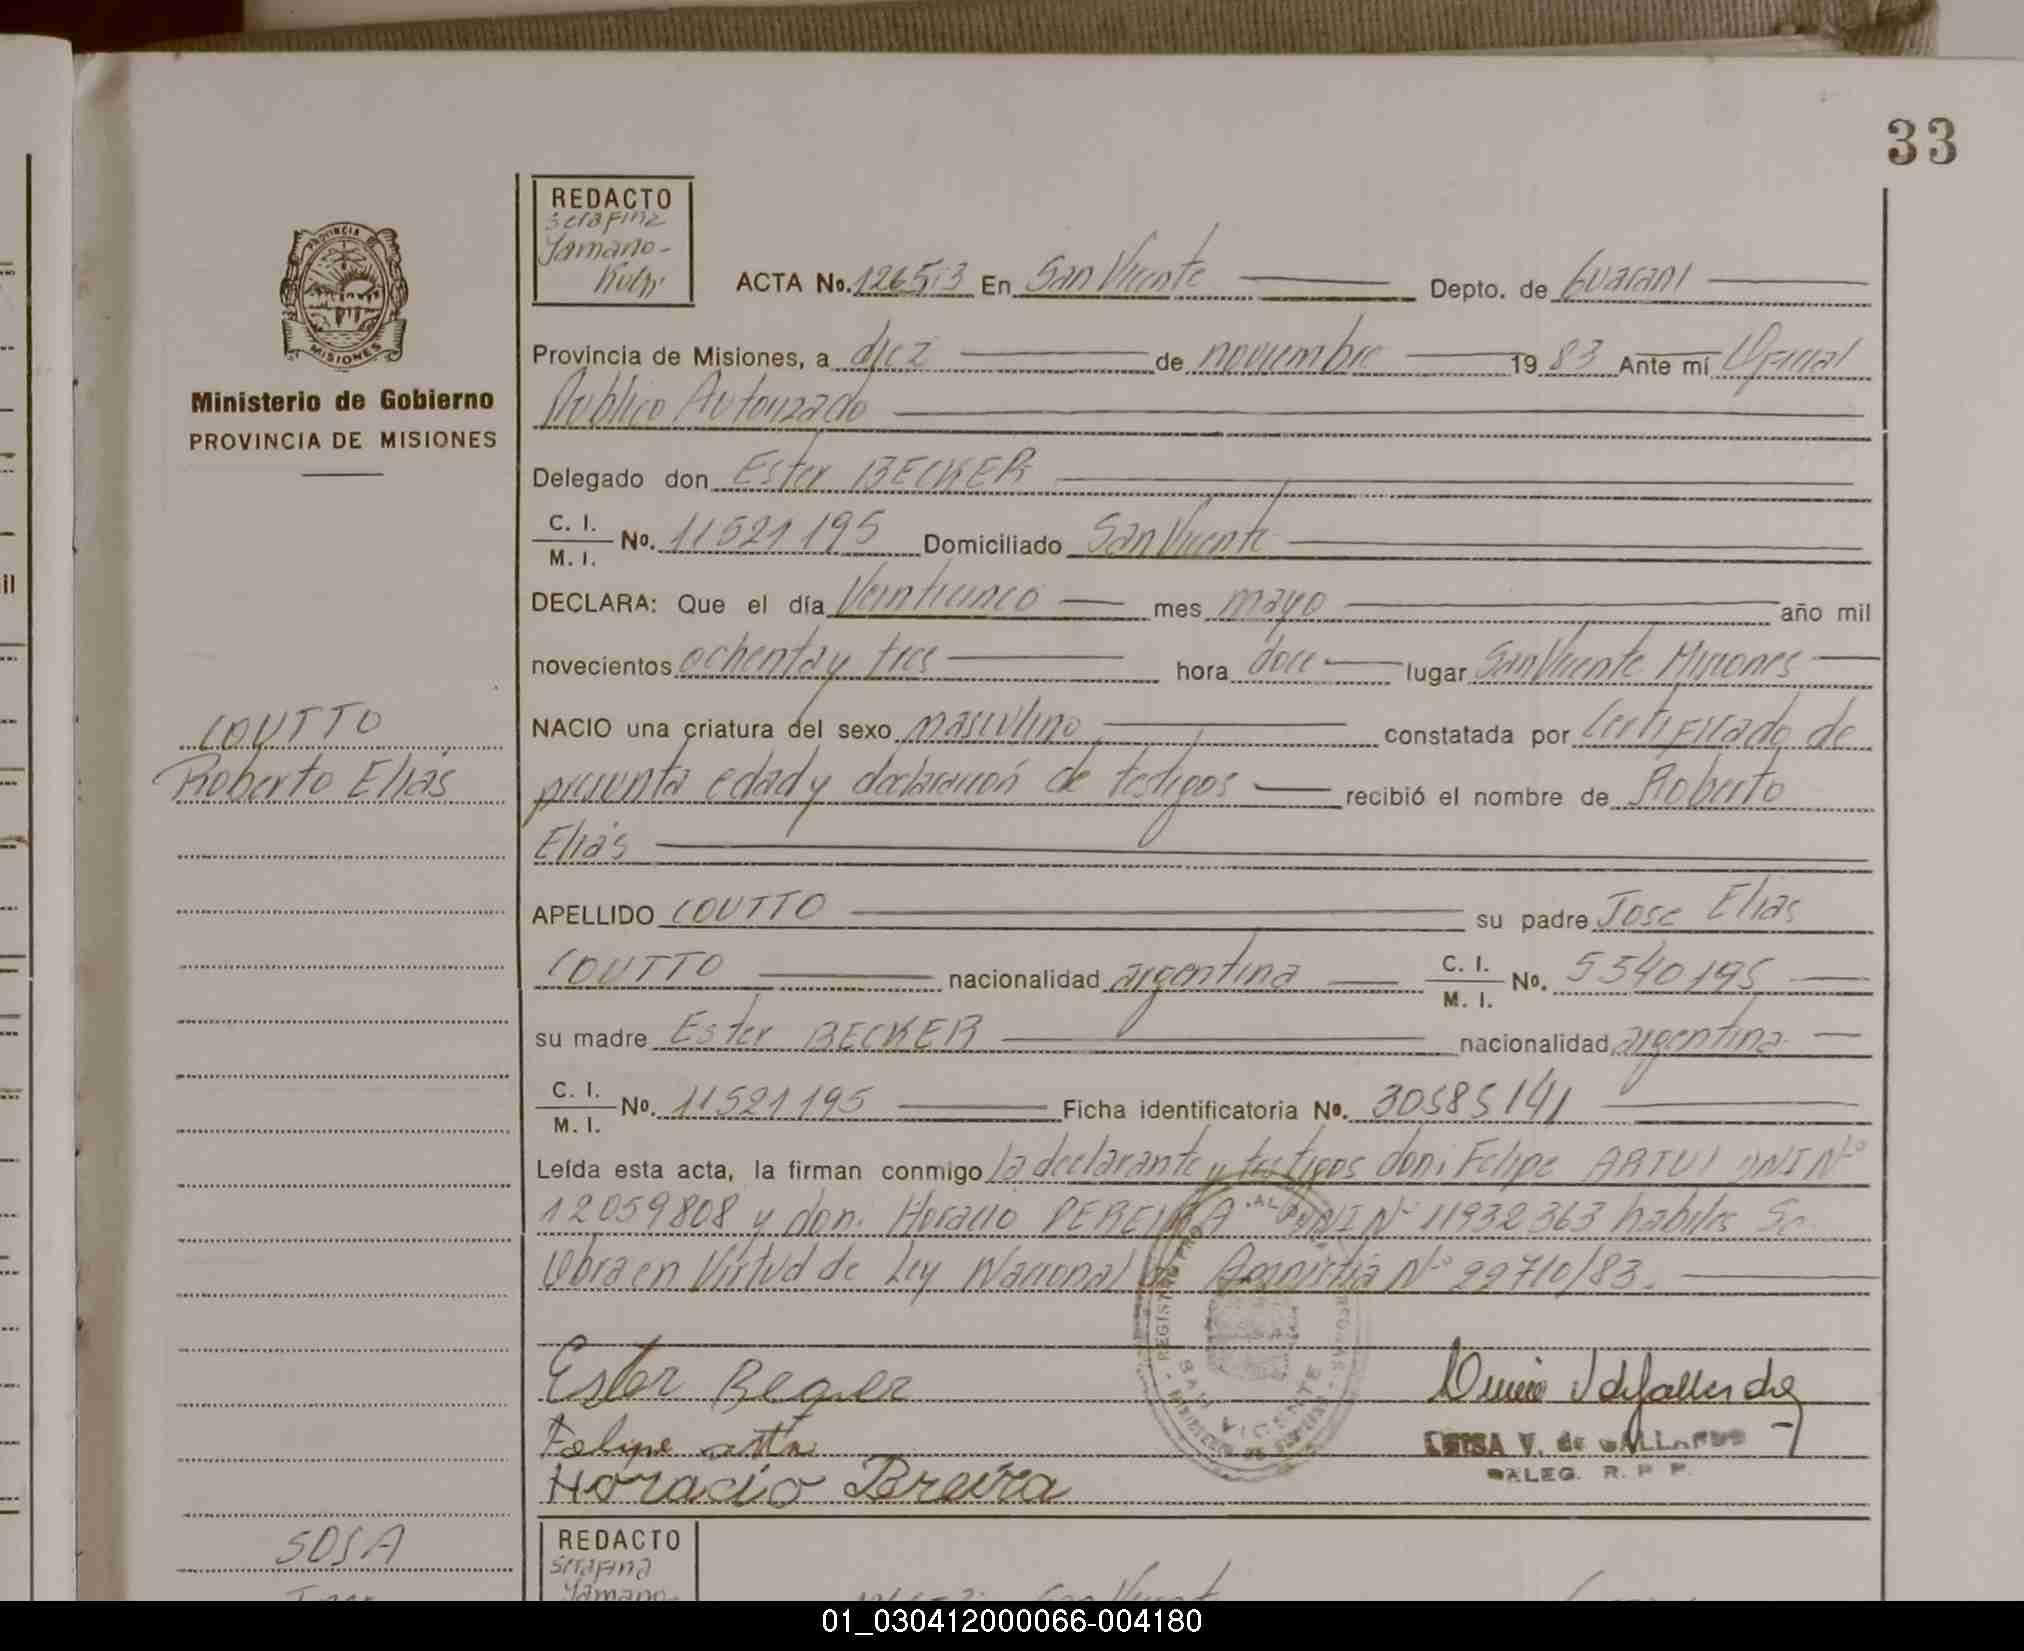 33
REDACTO
Serafina
Yamano-
PROVINCIA DE
MISIONES
Ministerio de Gobierno
PROVINCIA DE MISIONES
ACTA No. 12653 En San Vicente Depto. de Guaraní
Provincia de Misiones, a diez de noviembre 1983 Ante mí Oficial
Público Autorizado
Delegado don Ester BECKER
C. I.
M. I. No. 11521195 Domiciliado San Vicente
DECLARA: Que el día Veinticinco mes mayo año mil
novecientos ochenta y tres hora doce lugar San Vicente Misiones
NACIO una criatura del sexo masculino constatada por Certificado de
presunta edad y declaración de testigos recibió el nombre de Roberto
Elías
COUTTO
Roberto Elías
APELLIDO COUTTO su padre José Elias
COUTTO nacionalidad argentina C. I. M. I. No. 5540195
su madre Ester BECKER nacionalidad argentina
C. I.
M. I. No. 11521195 Ficha identificatoria No. 30585141
Leída esta acta, la firman conmigo la declarante y testigos don: Felipe DNI Nº
12059808 y don: Horacio PEREIRA DNI Nº 11932363 habiles Se
Obra en Virtud de Ley Nacional de Amnistía Nº 22710/83.
Ester Beguer
Felipe
Horacio Breira
SAN VICENTE
LUISA V. de GALLARDO
DALEG. R. P. P.
SOSA
REDACTO
Serafina
Yamano-
San Vicent
01_030412000066-004180